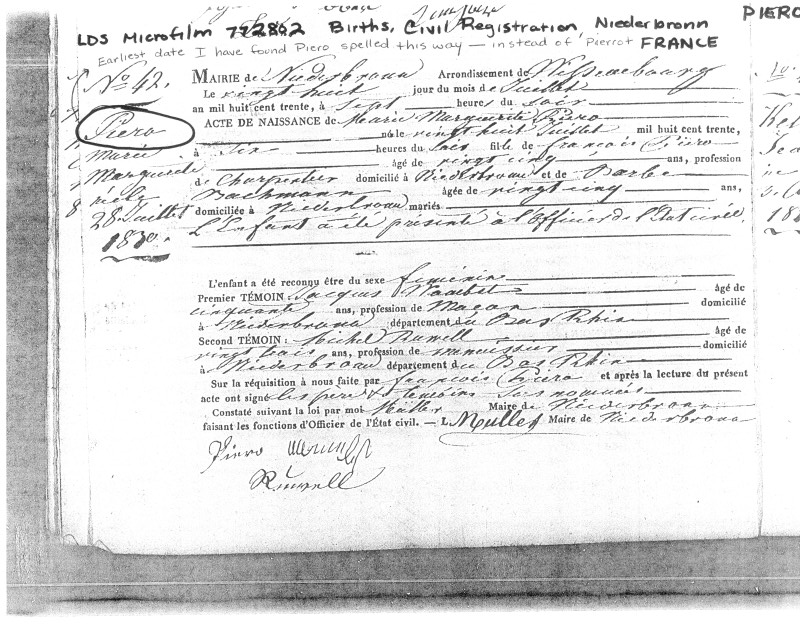 PIERO
LDS Microfilm 772802 Births, Civil Registration, Niederbronn
Earliest date I have found Piero spelled this way — instead of Pierrot FRANCE
No. 42.
Piero
Marie
Marguerite
née le
28 Juillet
1830.
MAIRIE de Niederbronn Arrondissement de Wissembourg
Le vingt huit jour du mois de Juillet
an mil huit cent trente, à Sept heures du Soir
ACTE DE NAISSANCE de Marie Marguerite Piero
née le vingt huit Juillet mil huit cent trente,
à Six heures du Soir fille de françois Piero
âgé de vingt cinq ans, profession
de Charpentier domicilié à Niederbronn et de Barbe
Bachmann âgée de vingt cinq ans,
domiciliée à Niederbronn mariés
L'Enfant a été présenté à l'Officier de l'Etat civil.
L'enfant a été reconnu être du sexe feminin
Premier TÉMOIN Jacques âgé de
cinquante ans, profession de Maçon domicilié
à Niederbronn département du Bas Rhin
Second TÉMOIN : Michel Ruwell âgé de
vingt trois ans, profession de domicilié
à Niederbronn département du Bas Rhin
Sur la réquisition à nous faite par françois Piero et après la lecture du présent
acte ont signé les père & temoins
Constaté suivant la loi par moi Müller Maire de Niederbronn
faisant les fonctions d'Officier de l'État civil. — L. Muller Maire de Niederbronn
Piero
Ruwell